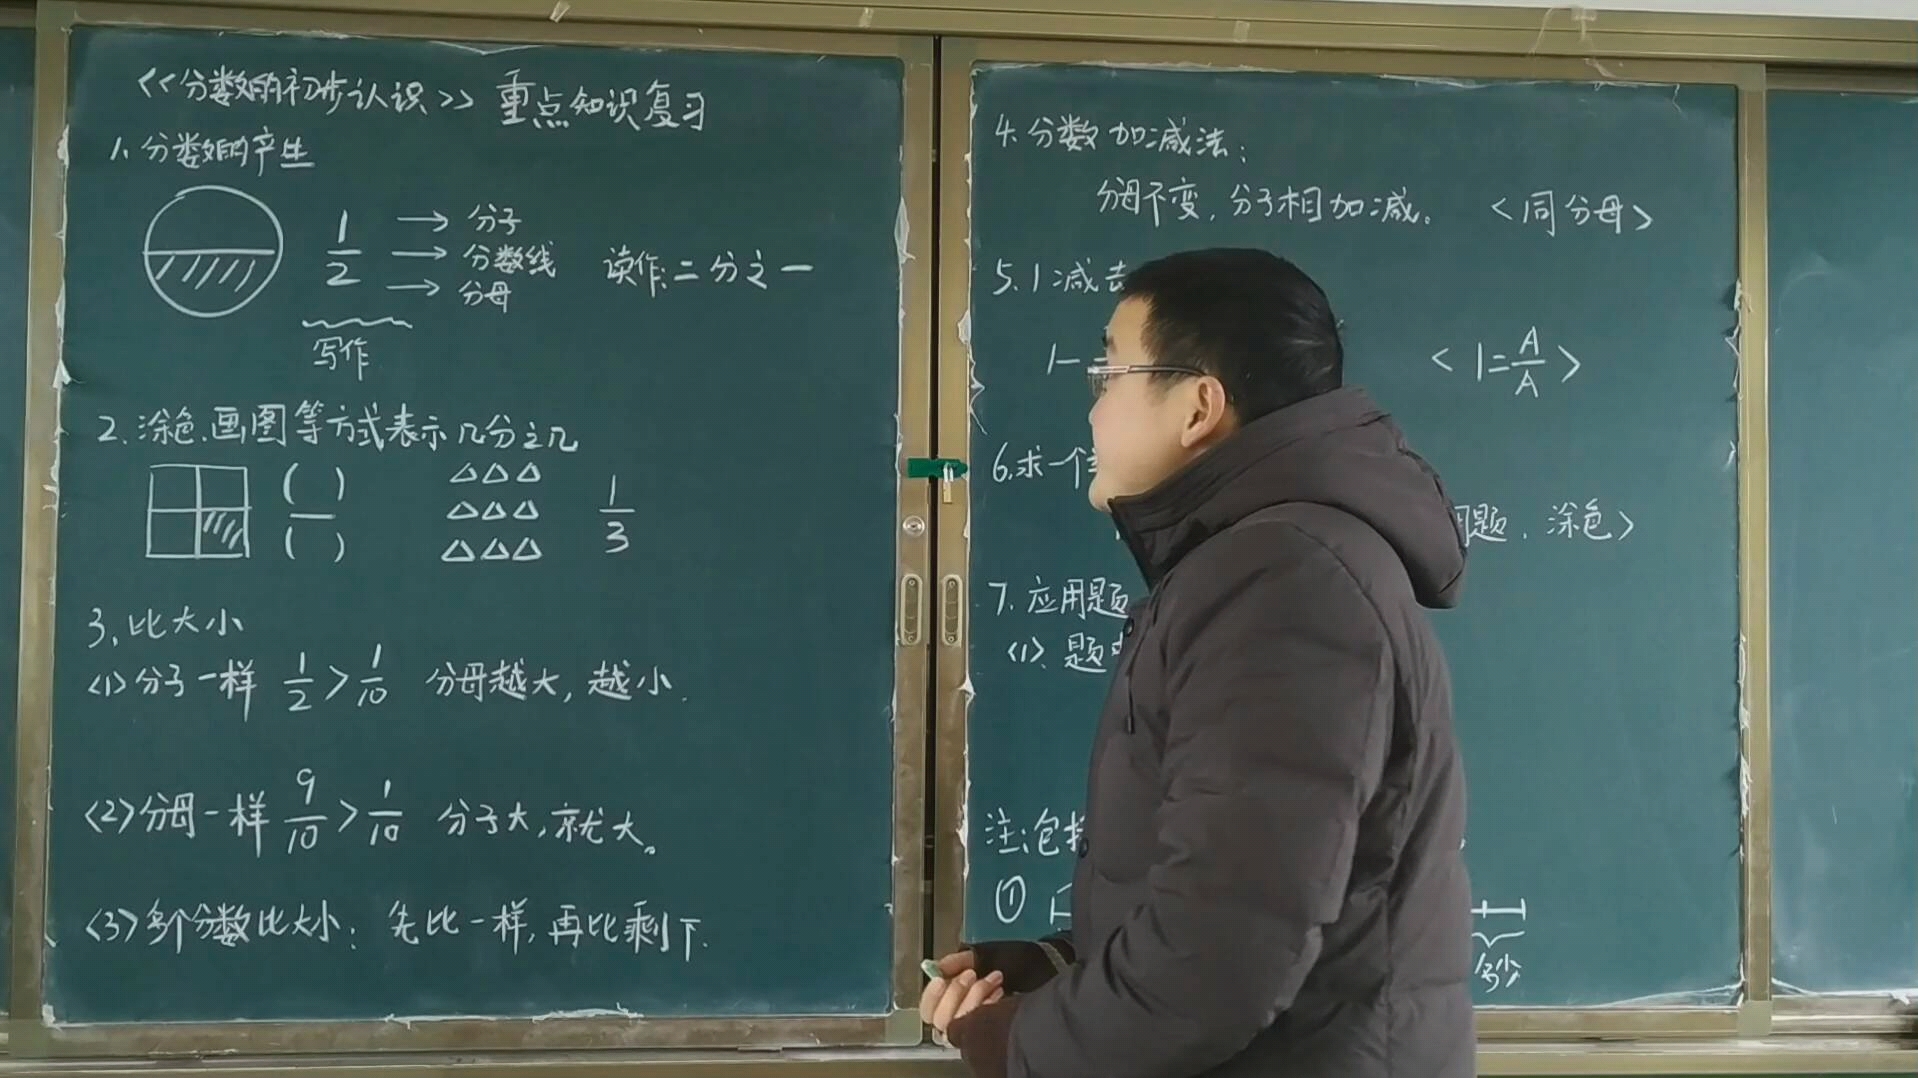 <<分数的初步认识>> 重点知识复习
1、分数的产生
1/2 → 分子
→ 分数线
→ 分母
读作:二分之一
写作
2.涂色、画图等方式表示几分之几
( )/( ) 1/3
3、比大小
<1>分子一样 1/2 > 1/10 分母越大,越小.
<2>分母一样 9/10 > 1/10 分子大,就大。
<3>多个分数比大小: 先比一样,再比剩下.
4.分数加减法:
分母不变,分子相加减。 <同分母>
5.1减去
1- <1=A/A>
6.求一个
题、涂色>
7.应用题
<1>、题
注:包
①
多少